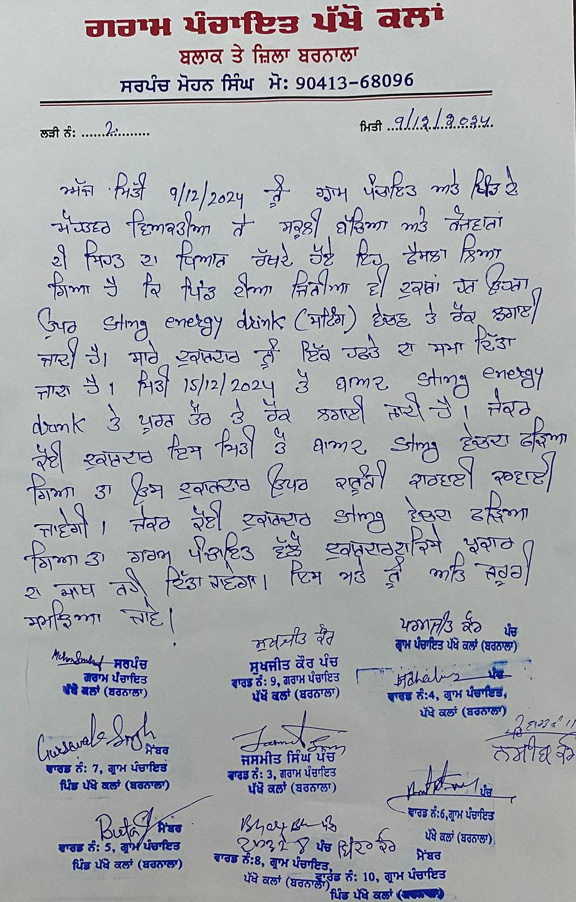 ਗਰਾਮ ਪੰਚਾਇਤ ਪੱਖੋ ਕਲਾਂ
ਬਲਾਕ ਤੇ ਜ਼ਿਲਾ ਬਰਨਾਲਾ
ਸਰਪੰਚ ਮੋਹਨ ਸਿੰਘ ਮੋ: 90413-68096
ਲੜੀ ਨੰ: ......2............ ਮਿਤੀ ..9/12/2024..
ਅੱਜ ਮਿਤੀ 9/12/2024 ਨੂੰ ਗ੍ਰਾਮ ਪੰਚਾਇਤ ਅਤੇ ਪਿੰਡ ਦੇ
ਮੋਹਤਵਰ ਵਿਅਕਤੀਆ ਨੇ ਸਕੂਲੀ ਬੱਚਿਆ ਅਤੇ ਨੌਜਵਾਨਾਂ
ਦੀ ਸਿਹਤ ਦਾ ਧਿਆਨ ਰੱਖਦੇ ਹੋਏ ਇਹ ਫੈਸਲਾ ਲਿਆ
ਗਿਆ ਹੈ ਕਿ ਪਿੰਡ ਦੀਆ ਜਿੰਨੀਆ ਵੀ ਦੁਕਾਨਾਂ ਹਨ ਉਹਨਾ
ਉਪਰ sting energy drink (ਸਟਿੰਗ) ਵੇਚਣ ਤੇ ਰੋਕ ਲਗਾਈ
ਜਾਂਦੀ ਹੈ। ਸਾਰੇ ਦੁਕਾਨਦਾਰ ਨੂੰ ਇੱਕ ਹਫਤੇ ਦਾ ਸਮਾ ਦਿੱਤਾ
ਜਾਂਦਾ ਹੈ। ਮਿਤੀ 15/12/2024 ਤੋਂ ਬਾਅਦ sting energy
drink ਤੇ ਪੂਰਨ ਤੌਰ ਤੇ ਰੋਕ ਲਗਾਈ ਜਾਂਦੀ ਹੈ। ਜੇਕਰ
ਕੋਈ ਦੁਕਾਨਦਾਰ ਇਸ ਮਿਤੀ ਤੋਂ ਬਾਅਦ sting ਵੇਚਦਾ ਫੜਿਆ
ਗਿਆ ਤਾ ਉਸ ਦੁਕਾਨਦਾਰ ਉਪਰ ਕਨੂੰਨੀ ਕਾਰਵਾਈ ਕਰਵਾਈ
ਜਾਵੇਗੀ। ਜੇਕਰ ਕੋਈ ਦੁਕਾਨਦਾਰ sting ਵੇਚਦਾ ਫੜਿਆ
ਗਿਆ ਤਾ ਗਰਾਮ ਪੰਚਾਇਤ ਵੱਲੋਂ ਦੁਕਾਨਦਾਰ ਦਾ ਕਿਸੇ ਪ੍ਰਕਾਰ
ਦਾ ਸਾਥ ਨਹੀ ਦਿੱਤਾ ਜਾਵੇਗਾ। ਇਸ ਮਤੇ ਨੂੰ ਅਤਿ ਜਰੂਰੀ
ਸਮਝਿਆ ਜਾਵੇ।
ਸਰਪੰਚ
ਗਰਾਮ ਪੰਚਾਇਤ
ਪੱਖੋ ਕਲਾਂ (ਬਰਨਾਲਾ)
ਸੁਖਜੀਤ ਕੌਰ
ਸੁਖਜੀਤ ਕੌਰ ਪੰਚ
ਵਾਰਡ ਨੰ: 9, ਗਰਾਮ ਪੰਚਾਇਤ
ਪੱਖੋ ਕਲਾਂ (ਬਰਨਾਲਾ)
ਪਰਮਜੀਤ ਕੌਰ ਪੰਚ
ਗ੍ਰਾਮ ਪੰਚਾਇਤ ਪੱਖੋ ਕਲਾਂ (ਬਰਨਾਲਾ)
ਪੰਚ
ਵਾਰਡ ਨੰ:4, ਗ੍ਰਾਮ ਪੰਚਾਇਤ,
ਪੱਖੋ ਕਲਾਂ (ਬਰਨਾਲਾ)
ਮੈਂਬਰ
ਵਾਰਡ ਨੰ: 7, ਗ੍ਰਾਮ ਪੰਚਾਇਤ
ਪਿੰਡ ਪੱਖੋ ਕਲਾਂ (ਬਰਨਾਲਾ)
ਜਸਮੀਤ ਸਿੰਘ ਪੰਚ
ਵਾਰਡ ਨੰ: 3, ਗਰਾਮ ਪੰਚਾਇਤ
ਪੱਖੋ ਕਲਾਂ (ਬਰਨਾਲਾ)
ਪੰਚ
ਵਾਰਡ ਨੰ:6,ਗ੍ਰਾਮ ਪੰਚਾਇਤ
ਪੱਖੋ ਕਲਾਂ (ਬਰਨਾਲਾ)
ਮੈਂਬਰ
ਵਾਰਡ ਨੰ: 5, ਗ੍ਰਾਮ ਪੰਚਾਇਤ
ਪਿੰਡ ਪੱਖੋ ਕਲਾਂ (ਬਰਨਾਲਾ)
ਪੰਚ
ਵਾਰਡ ਨੰ:8, ਗ੍ਰਾਮ ਪੰਚਾਇਤ,
ਪੱਖੋ ਕਲਾਂ (ਬਰਨਾਲਾ)
ਮੈਂਬਰ
ਵਾਰਡ ਨੰ: 10, ਗ੍ਰਾਮ ਪੰਚਾਇਤ
ਪਿੰਡ ਪੱਖੋ ਕਲਾਂ